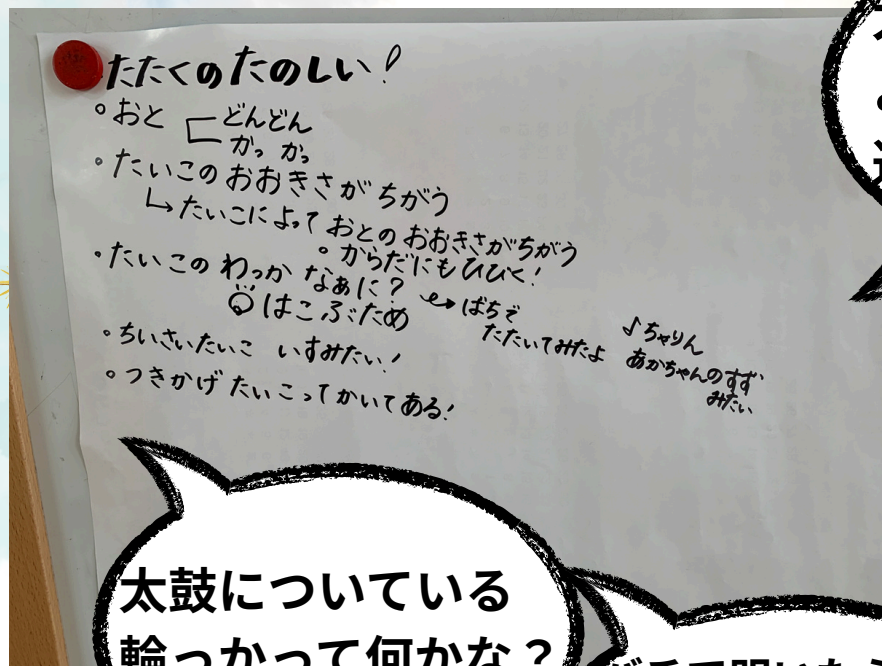 たたくのたのしい!
おと どんどん
かっ かっ
たいこのおおきさがちがう
↳たいこによっておとのおおきさがちがう
からだにもひびく!
たいこのわっかなぁに?
はこぶため
→ばちで
たたいてみたよ
♪ちゃりん
あかちゃんのすず
みたい
ちいさいたいこ いすみたい!
つきかげたいこってかいてある!
太鼓についている
輪っかって何かな?